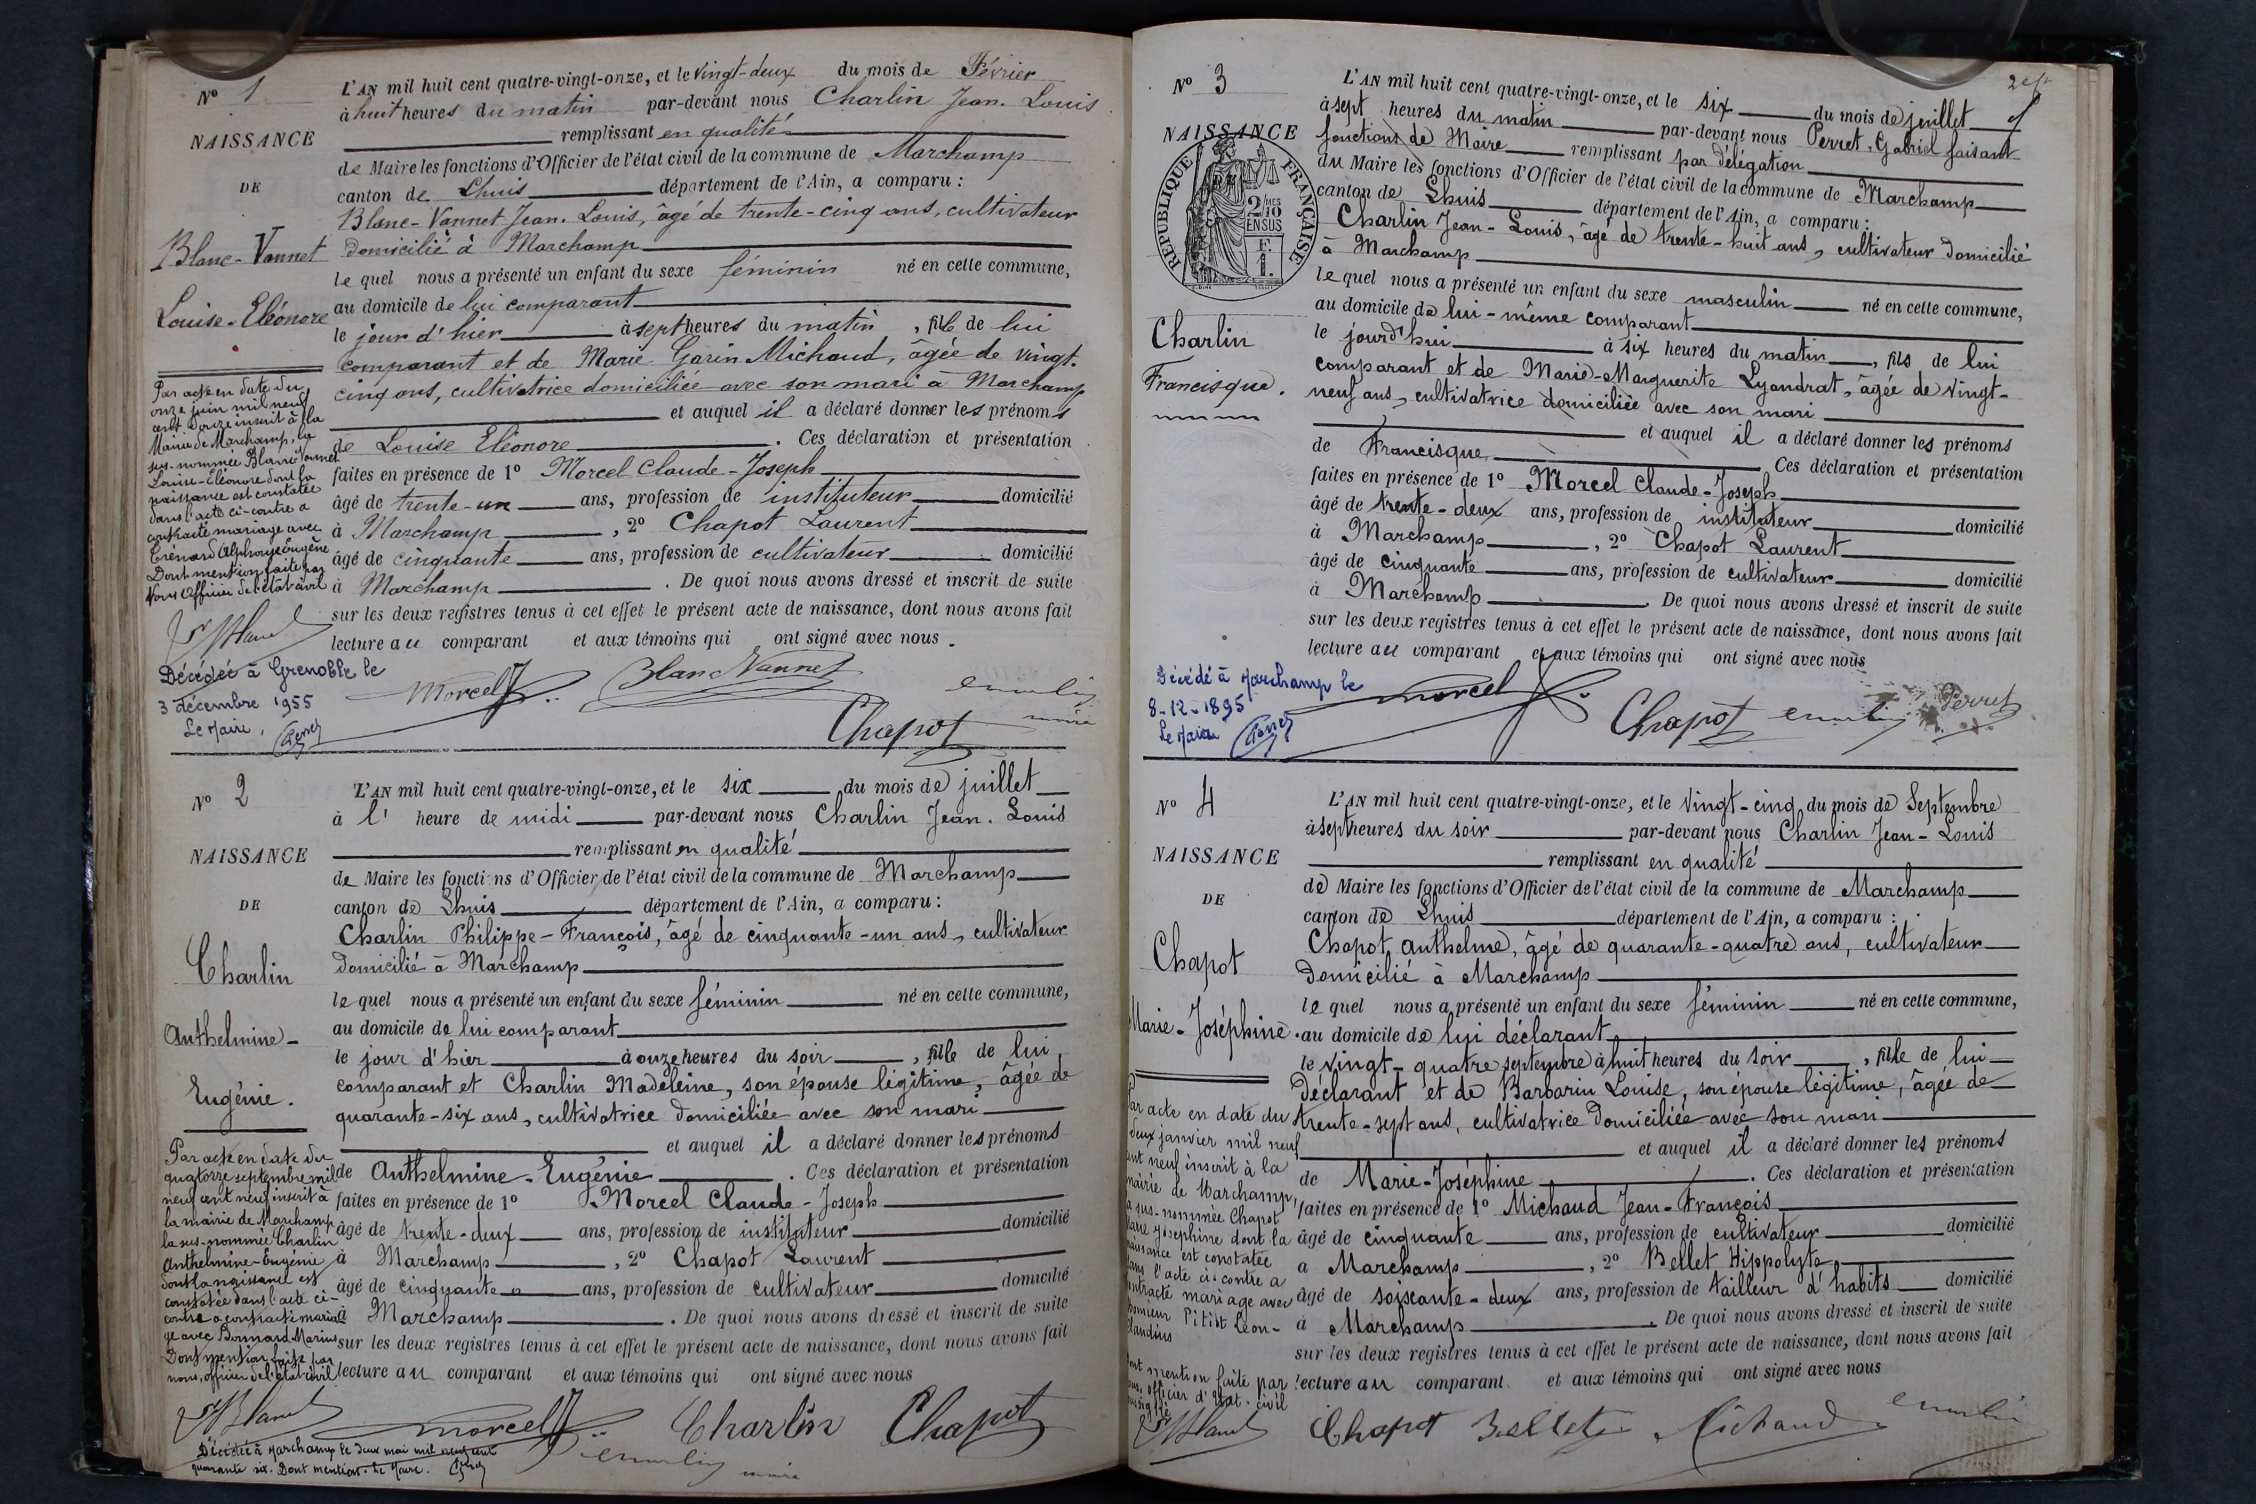 N° 1
NAISSANCE
DE
Blanc-Vannet
Louise-Eléonore
Par acte en date du
onze juin mil neuf
cent douze inscrit à la
Mairie de Marchamp, la
sus-nommée Blanc-Vannet
Louise-Eléonore dont la
naissance est constatée
dans l'acte ci-contre a
contracté mariage avec
Trénard Alphonse Eugène
Dont mention faite par
Nous Officier de l'état civil
Décédée à Grenoble le
3 décembre 1955
Le Maire,
L'AN mil huit cent quatre-vingt-onze, et le vingt-deux du mois de Février
à huit heures du matin par-devant nous Charlin Jean-Louis
remplissant en qualité
de Maire les fonctions d'Officier de l'état civil de la commune de Marchamp
canton de Lhuis département de l'Ain, a comparu :
Blanc-Vannet Jean-Louis, âgé de trente-cinq ans, cultivateur
domicilié à Marchamp
le quel nous a présenté un enfant du sexe féminin né en cette commune,
au domicile de lui comparant
le jour d'hier à sept heures du matin, fille de lui
comparant et de Marie Garin Michaud, âgée de vingt-
cinq ans, cultivatrice domiciliée avec son mari à Marchamp
et auquel il a déclaré donner les prénoms
de Louise Eléonore. Ces déclaration et présentation
faites en présence de 1° Morcel Claude-Joseph
âgé de trente-un ans, profession de instituteur domicilié
à Marchamp, 2° Chapot Laurent
âgé de cinquante ans, profession de cultivateur domicilié
à Marchamp. De quoi nous avons dressé et inscrit de suite
sur les deux registres tenus à cet effet le présent acte de naissance, dont nous avons fait
lecture au comparant et aux témoins qui ont signé avec nous.
Morcel Blanc Vannet
Chapot maire
N° 2
NAISSANCE
DE
Charlin
Anthelmine-
Eugénie.
Par acte en date du
quatorze septembre mil
neuf cent neuf inscrit à
la mairie de Marchamp
la sus-nommée Charlin
Anthelmine-Eugénie
dont la naissance est
constatée dans l'acte ci-
contre a contracté maria
ge avec Bonnard Marius
Dont mention faite par
nous, officier de l'état civil
Décédée à Marchamp le deux mai mil neuf cent
quarante six. Dont mention. Le Maire.
L'AN mil huit cent quatre-vingt-onze, et le six du mois de juillet
à l' heure de midi par-devant nous Charlin Jean-Louis
remplissant en qualité
de Maire les fonctions d'Officier de l'état civil de la commune de Marchamp
canton de Lhuis département de l'Ain, a comparu :
Charlin Philippe-François, âgé de cinquante-un ans, cultivateur
domicilié à Marchamp
le quel nous a présenté un enfant du sexe féminin né en cette commune,
au domicile de lui comparant
le jour d'hier à onze heures du soir, fille de lui
comparant et Charlin Madeleine, son épouse légitime, âgée de
quarante-six ans, cultivatrice domiciliée avec son mari
et auquel il a déclaré donner les prénoms
de Anthelmine-Eugénie. Ces déclaration et présentation
faites en présence de 1° Morcel Claude-Joseph
âgé de trente-deux ans, profession de instituteur domicilié
à Marchamp, 2° Chapot Laurent
âgé de cinquante ans, profession de cultivateur domicilié
à Marchamp. De quoi nous avons dressé et inscrit de suite
sur les deux registres tenus à cet effet le présent acte de naissance, dont nous avons fait
lecture au comparant et aux témoins qui ont signé avec nous
Morcel Charlin Chapot
maire
N° 3
NAISSANCE
DE
RÉPUBLIQUE FRANÇAISE
2 MES
10
EN SUS
F.
1.
Charlin
Francisque.
Décédé à Marchamp le
8-12-1895
Le Maire
L'AN mil huit cent quatre-vingt-onze, et le six du mois de juillet
à sept heures du matin par-devant nous Perret, Gabriel faisant
fonctions de Maire remplissant par délégation
du Maire les fonctions d'Officier de l'état civil de la commune de Marchamp
canton de Lhuis département de l'Ain, a comparu :
Charlin Jean-Louis, âgé de trente-huit ans, cultivateur domicilié
à Marchamp
le quel nous a présenté un enfant du sexe masculin né en cette commune,
au domicile de lui-même comparant
le jourd'hui à six heures du matin, fils de lui
comparant et de Marie-Marguerite Lyandrat, âgée de vingt-
neuf ans, cultivatrice domiciliée avec son mari
et auquel il a déclaré donner les prénoms
de Francisque Ces déclaration et présentation
faites en présence de 1° Morcel Claude-Joseph
âgé de trente-deux ans, profession de instituteur domicilié
à Marchamp, 2° Chapot Laurent
âgé de cinquante ans, profession de cultivateur domicilié
à Marchamp. De quoi nous avons dressé et inscrit de suite
sur les deux registres tenus à cet effet le présent acte de naissance, dont nous avons fait
lecture au comparant et aux témoins qui ont signé avec nous
Morcel Chapot Perret
N° 4
NAISSANCE
DE
Chapot
Marie-Joséphine.
Par acte en date du
deux janvier mil neuf
cent neuf inscrit à la
mairie de Marchamp,
la sus-nommée Chapot
Marie Joséphine dont la
naissance est constatée
dans l'acte ci-contre a
contracté mariage avec
Petit Léon-
Claudius
Dont mention faite par
nous, officier d'état-civil
L'AN mil huit cent quatre-vingt-onze, et le vingt-cinq du mois de Septembre
à sept heures du soir par-devant nous Charlin Jean-Louis
remplissant en qualité
de Maire les fonctions d'Officier de l'état civil de la commune de Marchamp
canton de Lhuis département de l'Ain, a comparu :
Chapot Anthelme, âgé de quarante-quatre ans, cultivateur
domicilié à Marchamp
le quel nous a présenté un enfant du sexe féminin né en cette commune,
au domicile de lui déclarant
le vingt-quatre septembre à huit heures du soir, fille de lui
déclarant et de Barbarin Louise, son épouse légitime, âgée de
trente-sept ans, cultivatrice domiciliée avec son mari
et auquel il a déclaré donner les prénoms
de Marie-Joséphine. Ces déclaration et présentation
faites en présence de 1° Michaud Jean-François
âgé de cinquante ans, profession de cultivateur domicilié
à Marchamp, 2° Bellet Hippolyte
âgé de soixante-deux ans, profession de tailleur d'habits domicilié
à Marchamp. De quoi nous avons dressé et inscrit de suite
sur les deux registres tenus à cet effet le présent acte de naissance, dont nous avons fait
lecture au comparant et aux témoins qui ont signé avec nous
Chapot Bellet Michaud